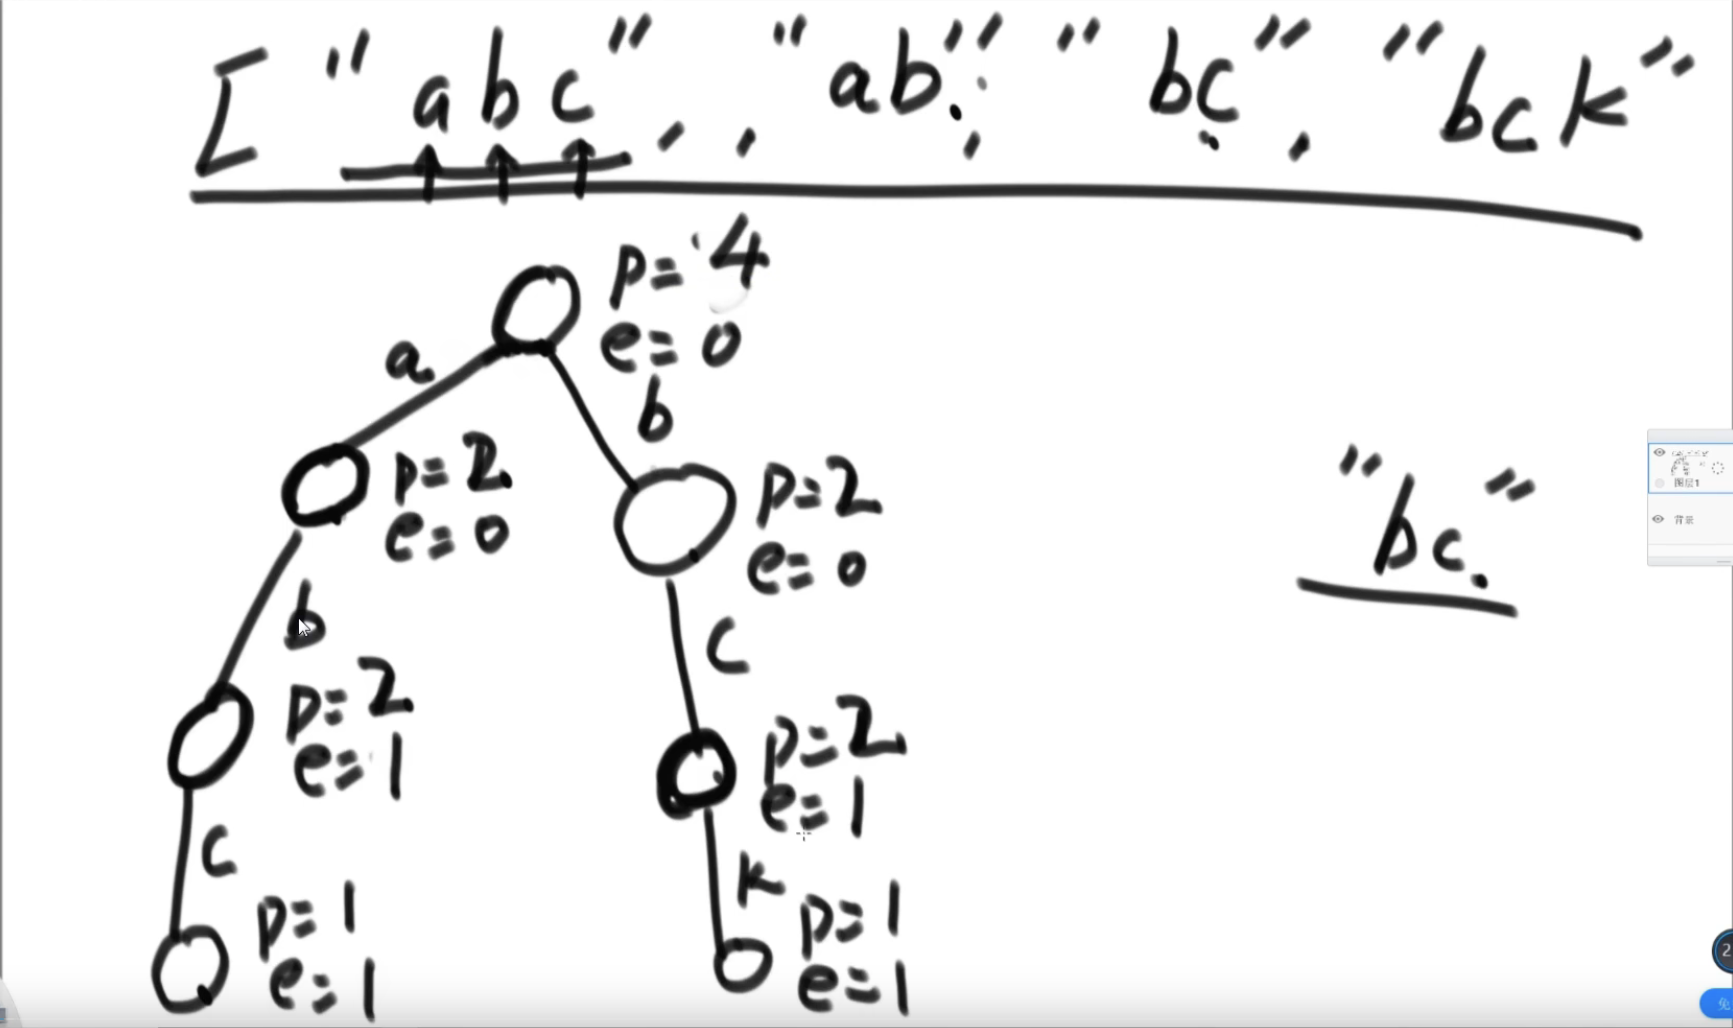 ["abc", , "ab", "bc", "bck"
p=4
e=0
a
b
p=2
e=0
p=2
e=0
"bc."
b
c
p=2
e=1
p=2
e=1
c
k
p=1
e=1
p=1
e=1
图层1
背景
2
免